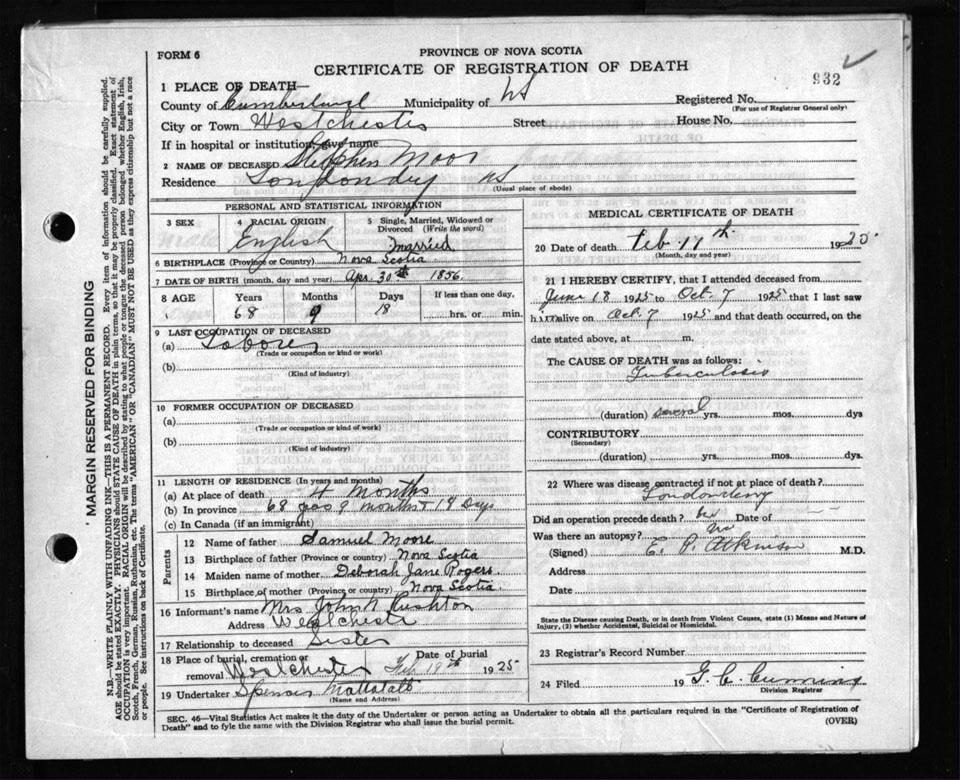 FORM 6
PROVINCE OF NOVA SCOTIA
CERTIFICATE OF REGISTRATION OF DEATH
932
1 PLACE OF DEATH—
County of Cumberland Municipality of NS
Registered No.
(For use of Registrar General only)
City or Town Westchester Street House No.
If in hospital or institution, give name
2 NAME OF DECEASED Stephen Moor
Residence Londonderry NS
(Usual place of abode)
PERSONAL AND STATISTICAL INFORMATION
3 SEX
4 RACIAL ORIGIN
English
5 Single, Married, Widowed or Divorced (Write the word)
Married
6 BIRTHPLACE (Province or Country) Nova Scotia
7 DATE OF BIRTH (month, day and year) Apr. 30th 1856
8 AGE Years Months Days If less than one day,
68 9 18 hrs. or min.
9 LAST OCCUPATION OF DECEASED
(a) Laborer
(Trade or occupation or kind or work)
(b)
(Kind of industry)
10 FORMER OCCUPATION OF DECEASED
(a)
(Trade or occupation or kind of work)
(b)
(Kind of industry)
11 LENGTH OF RESIDENCE (In years and months)
(a) At place of death 4 Months
(b) In province 68 9 months 19 Days
(c) In Canada (if an immigrant)
Parents
12 Name of father Samuel Moore
13 Birthplace of father (Province or country) Nova Scotia
14 Maiden name of mother Deborah Jane Rogers
15 Birthplace of mother (Province or country) Nova Scotia
16 Informant's name Mrs John N Rushton
Address Westchester
17 Relationship to deceased Sister
18 Place of burial, cremation or removal Westchester Date of burial Feb 19th 1925
19 Undertaker Spencer Mattatall
(Name and Address)
MEDICAL CERTIFICATE OF DEATH
20 Date of death Feb 17th 1925
(Month, day and year)
21 I HEREBY CERTIFY, that I attended deceased from
June 18 1925 to Oct. 7 1925 that I last saw
him alive on Oct. 7 1925 and that death occurred, on
date stated above, at m.
The CAUSE OF DEATH was as follows:
Tuberculosis
(duration) several yrs. mos. dys
CONTRIBUTORY
(Secondary)
(duration) yrs. mos. dys
22 Where was disease contracted if not at place of death?
Londonderry
Did an operation precede death? no Date of
Was there an autopsy? no
(Signed) E. P. Atkinson M.D.
Address
Date
State the Disease causing Death, or in death from Violent Causes, state (1) Means and Nature of Injury, (2) whether Accidental, Suicidal or Homicidal.
23 Registrar's Record Number
24 Filed 19 G. C. Cummins
Division Registrar
SEC. 46—Vital Statistics Act makes it the duty of the Undertaker or person acting as Undertaker to obtain all the particulars required in the "Certificate of Registration of
Death" and to fyle the same with the Division Registrar who shall issue the burial permit.
(OVER)
MARGIN RESERVED FOR BINDING
N.B.—WRITE PLAINLY WITH UNFADING INK—THIS IS A PERMANENT RECORD. Every item of information should be carefully supplied.
AGE should be stated EXACTLY. PHYSICIANS should STATE CAUSE OF DEATH in plain terms, so that it may be properly classified. Exact statement of
OCCUPATION is very important. RACIAL ORIGIN will be described by stating to what people or tongue the deceased person belonged whether English, Irish,
Scotch, French, German, Russian, Ruthenian, etc. The terms "AMERICAN" or "CANADIAN" MUST NOT BE USED as they express citizenship but not a race
or people. See instructions on back of Certificate.